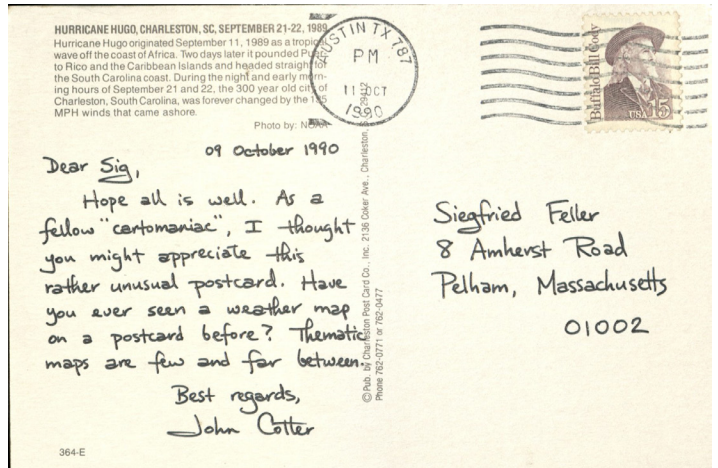 HURRICANE HUGO, CHARLESTON, SC, SEPTEMBER 21-22, 1989
Hurricane Hugo originated September 11, 1989 as a tropical
wave off the coast of Africa. Two days later it pounded Puer-
to Rico and the Caribbean Islands and headed straight for
the South Carolina coast. During the night and early morn-
ing hours of September 21 and 22, the 300 year old city of
Charleston, South Carolina, was forever changed by the 135
MPH winds that came ashore.
Photo by: NOAA
AUSTIN TX 787
PM
11 OCT
1990
Buffalo Bill Cody
USA 15
09 October 1990
Dear Sig,
Hope all is well. As a
fellow "cartomaniac", I thought
you might appreciate this
rather unusual postcard. Have
you ever seen a weather map
on a postcard before? Thematic
maps are few and far between.
Best regards,
John Cotter
364-E
© Pub. by Charleston Post Card Co., Inc. 2136 Coker Ave., Charleston,
Phone 762-0771 or 762-0477
Siegfried Feller
8 Amherst Road
Pelham, Massachusetts
01002